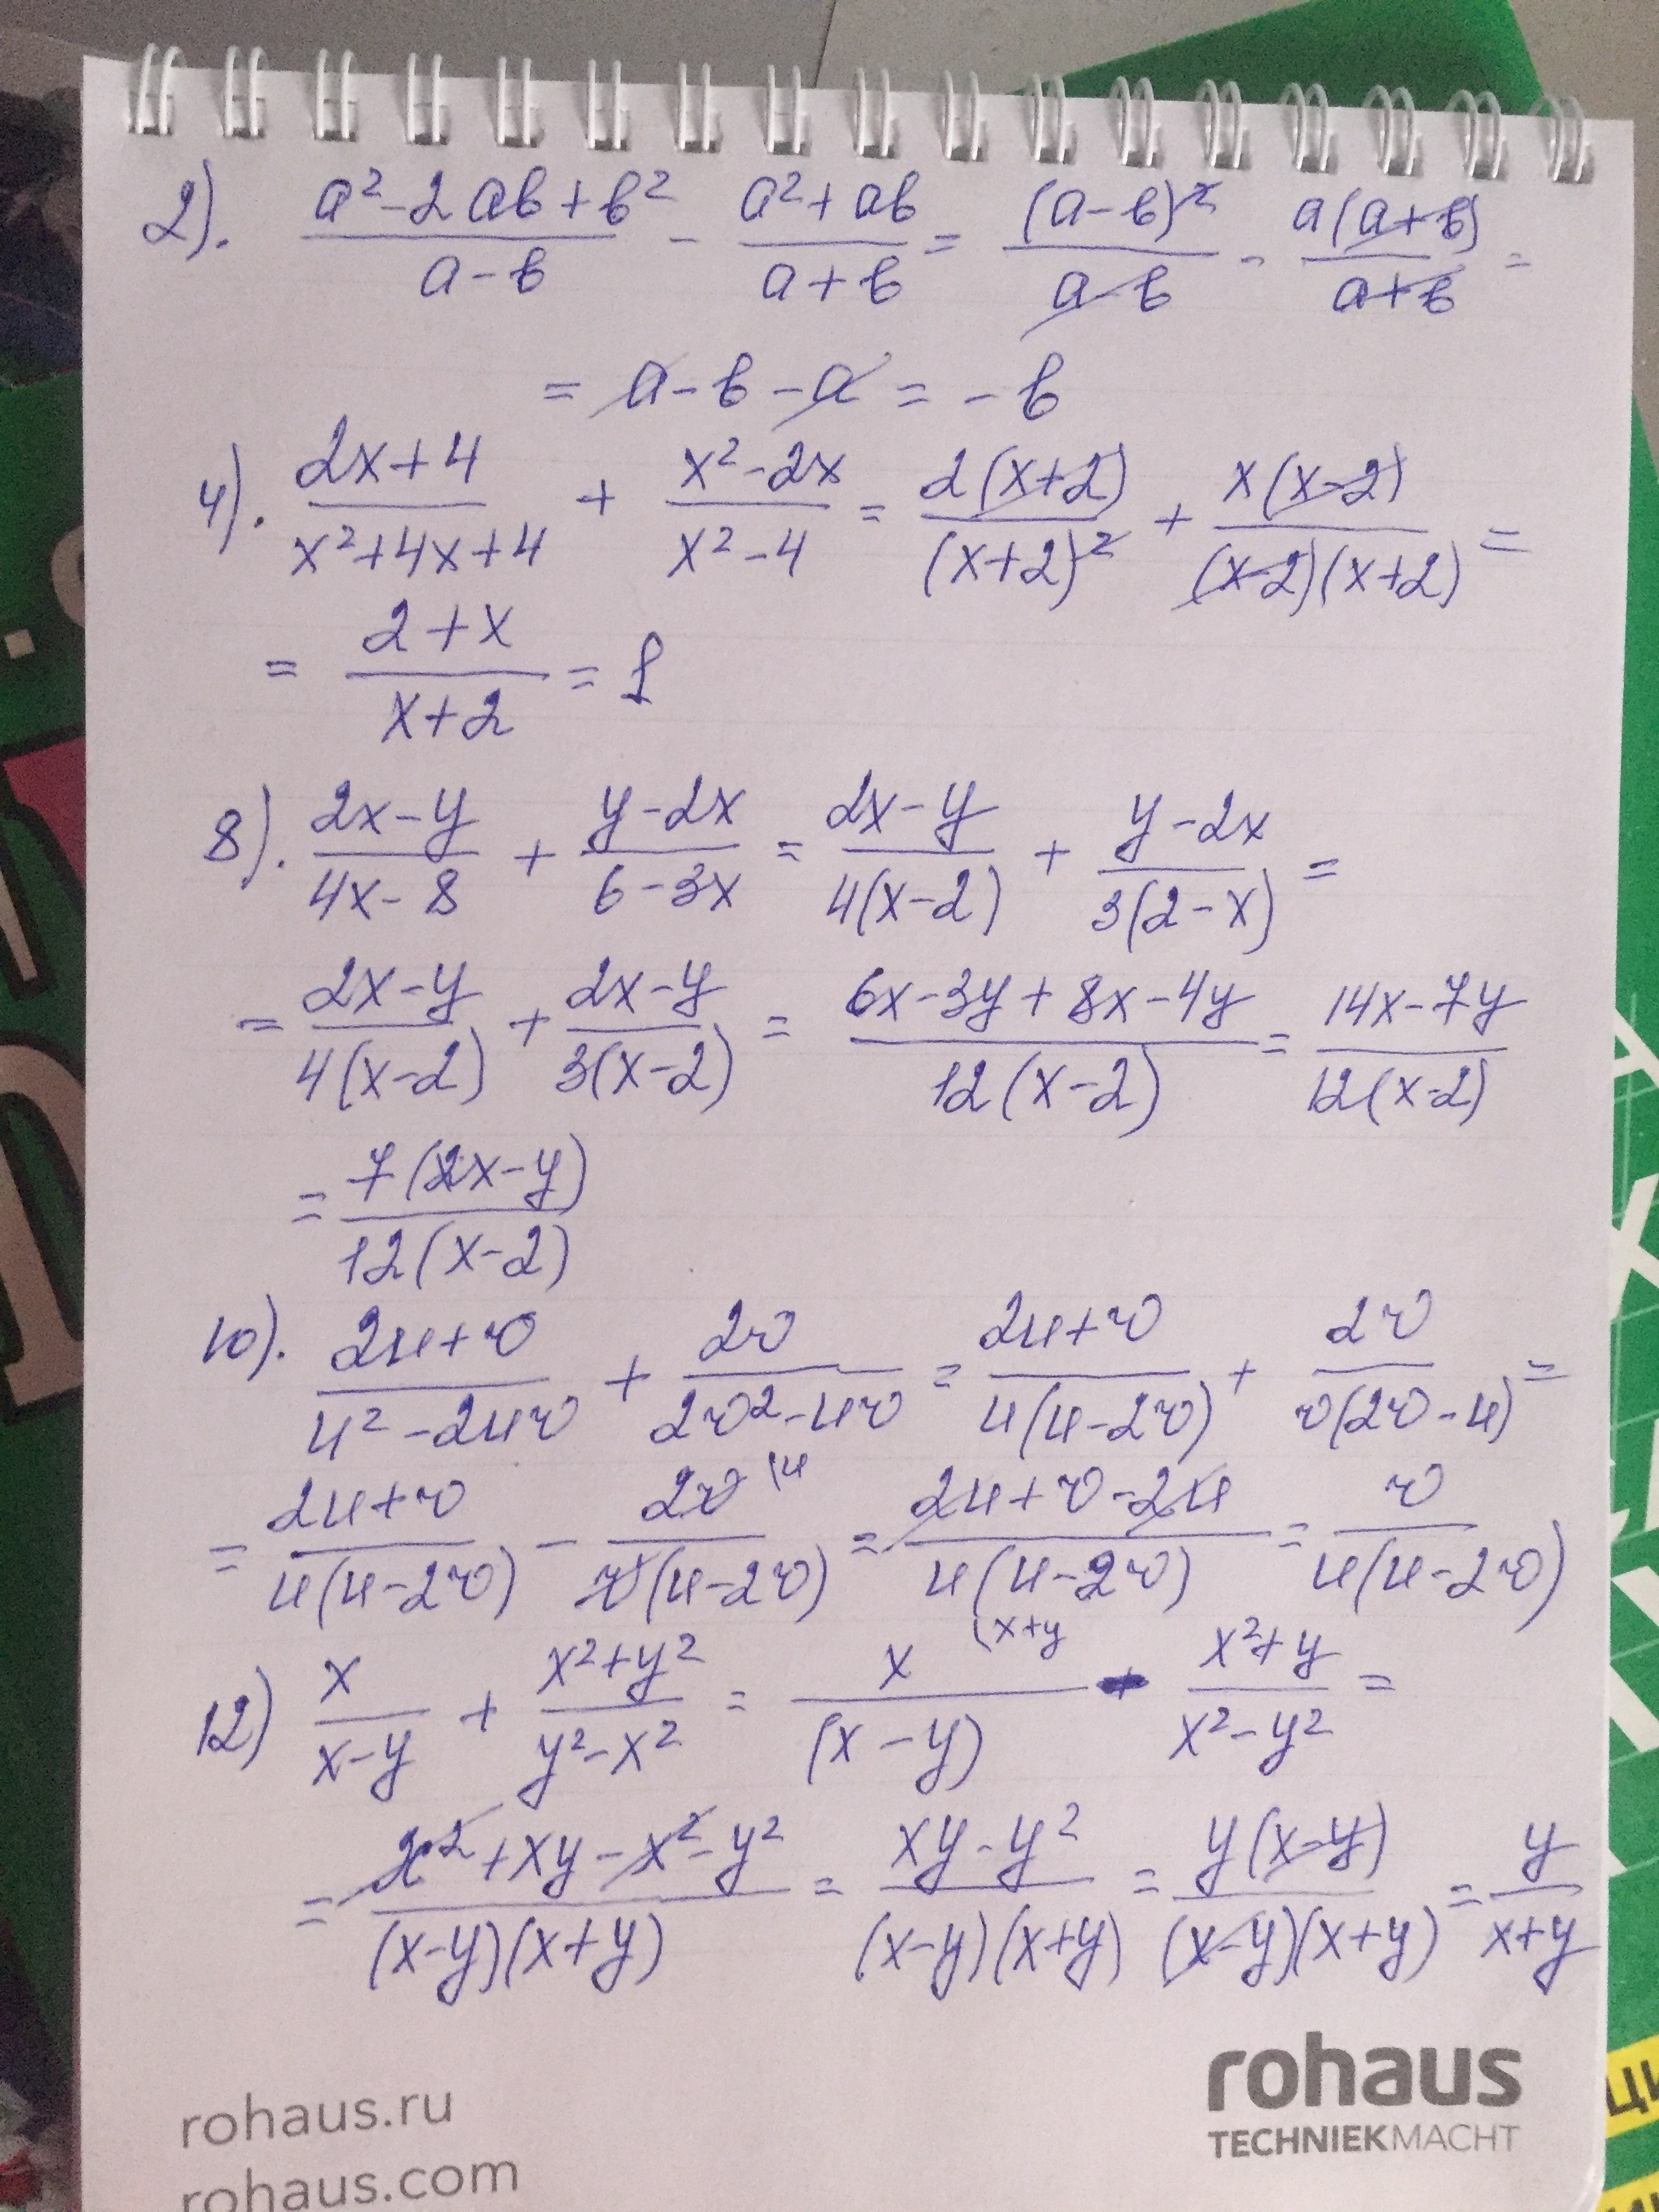 2). (a²-2ab+b²)/(a-b) - (a²+ab)/(a+b) = (a-b)²/(a-b) - a(a+b)/(a+b) =
= a-b-a = -b
4). (2x+4)/(x²+4x+4) + (x²-2x)/(x²-4) = 2(x+2)/(x+2)² + x(x-2)/((x-2)(x+2)) =
= (2+x)/(x+2) = 1
8). (2x-y)/(4x-8) + (y-2x)/(6-3x) = (2x-y)/(4(x-2)) + (y-2x)/(3(2-x)) =
= (2x-y)/(4(x-2)) + (2x-y)/(3(x-2)) = (6x-3y+8x-4y)/(12(x-2)) = (14x-7y)/(12(x-2))
= 7(2x-y)/(12(x-2))
10). (2u+v)/(u²-2uv) + 2v/(2v²-uv) = (2u+v)/(u(u-2v)) + 2v/(v(2v-u)) =
= (2u+v)/(u(u-2v)) - 2v(u/(v(u-2v)) = (2u+v-2u)/(u(u-2v)) = v/(u(u-2v))
12) x/(x-y) + (x²+y²)/(y²-x²) = x (x+y/(x-y) - (x²+y)/(x²-y²) =
= (x²+xy-x²-y²)/((x-y)(x+y)) = (xy-y²)/((x-y)(x+y)) = y(x-y)/((x-y)(x+y)) = y/(x+y)
rohaus
TECHNIEKMACHT
rohaus.ru
rohaus.com